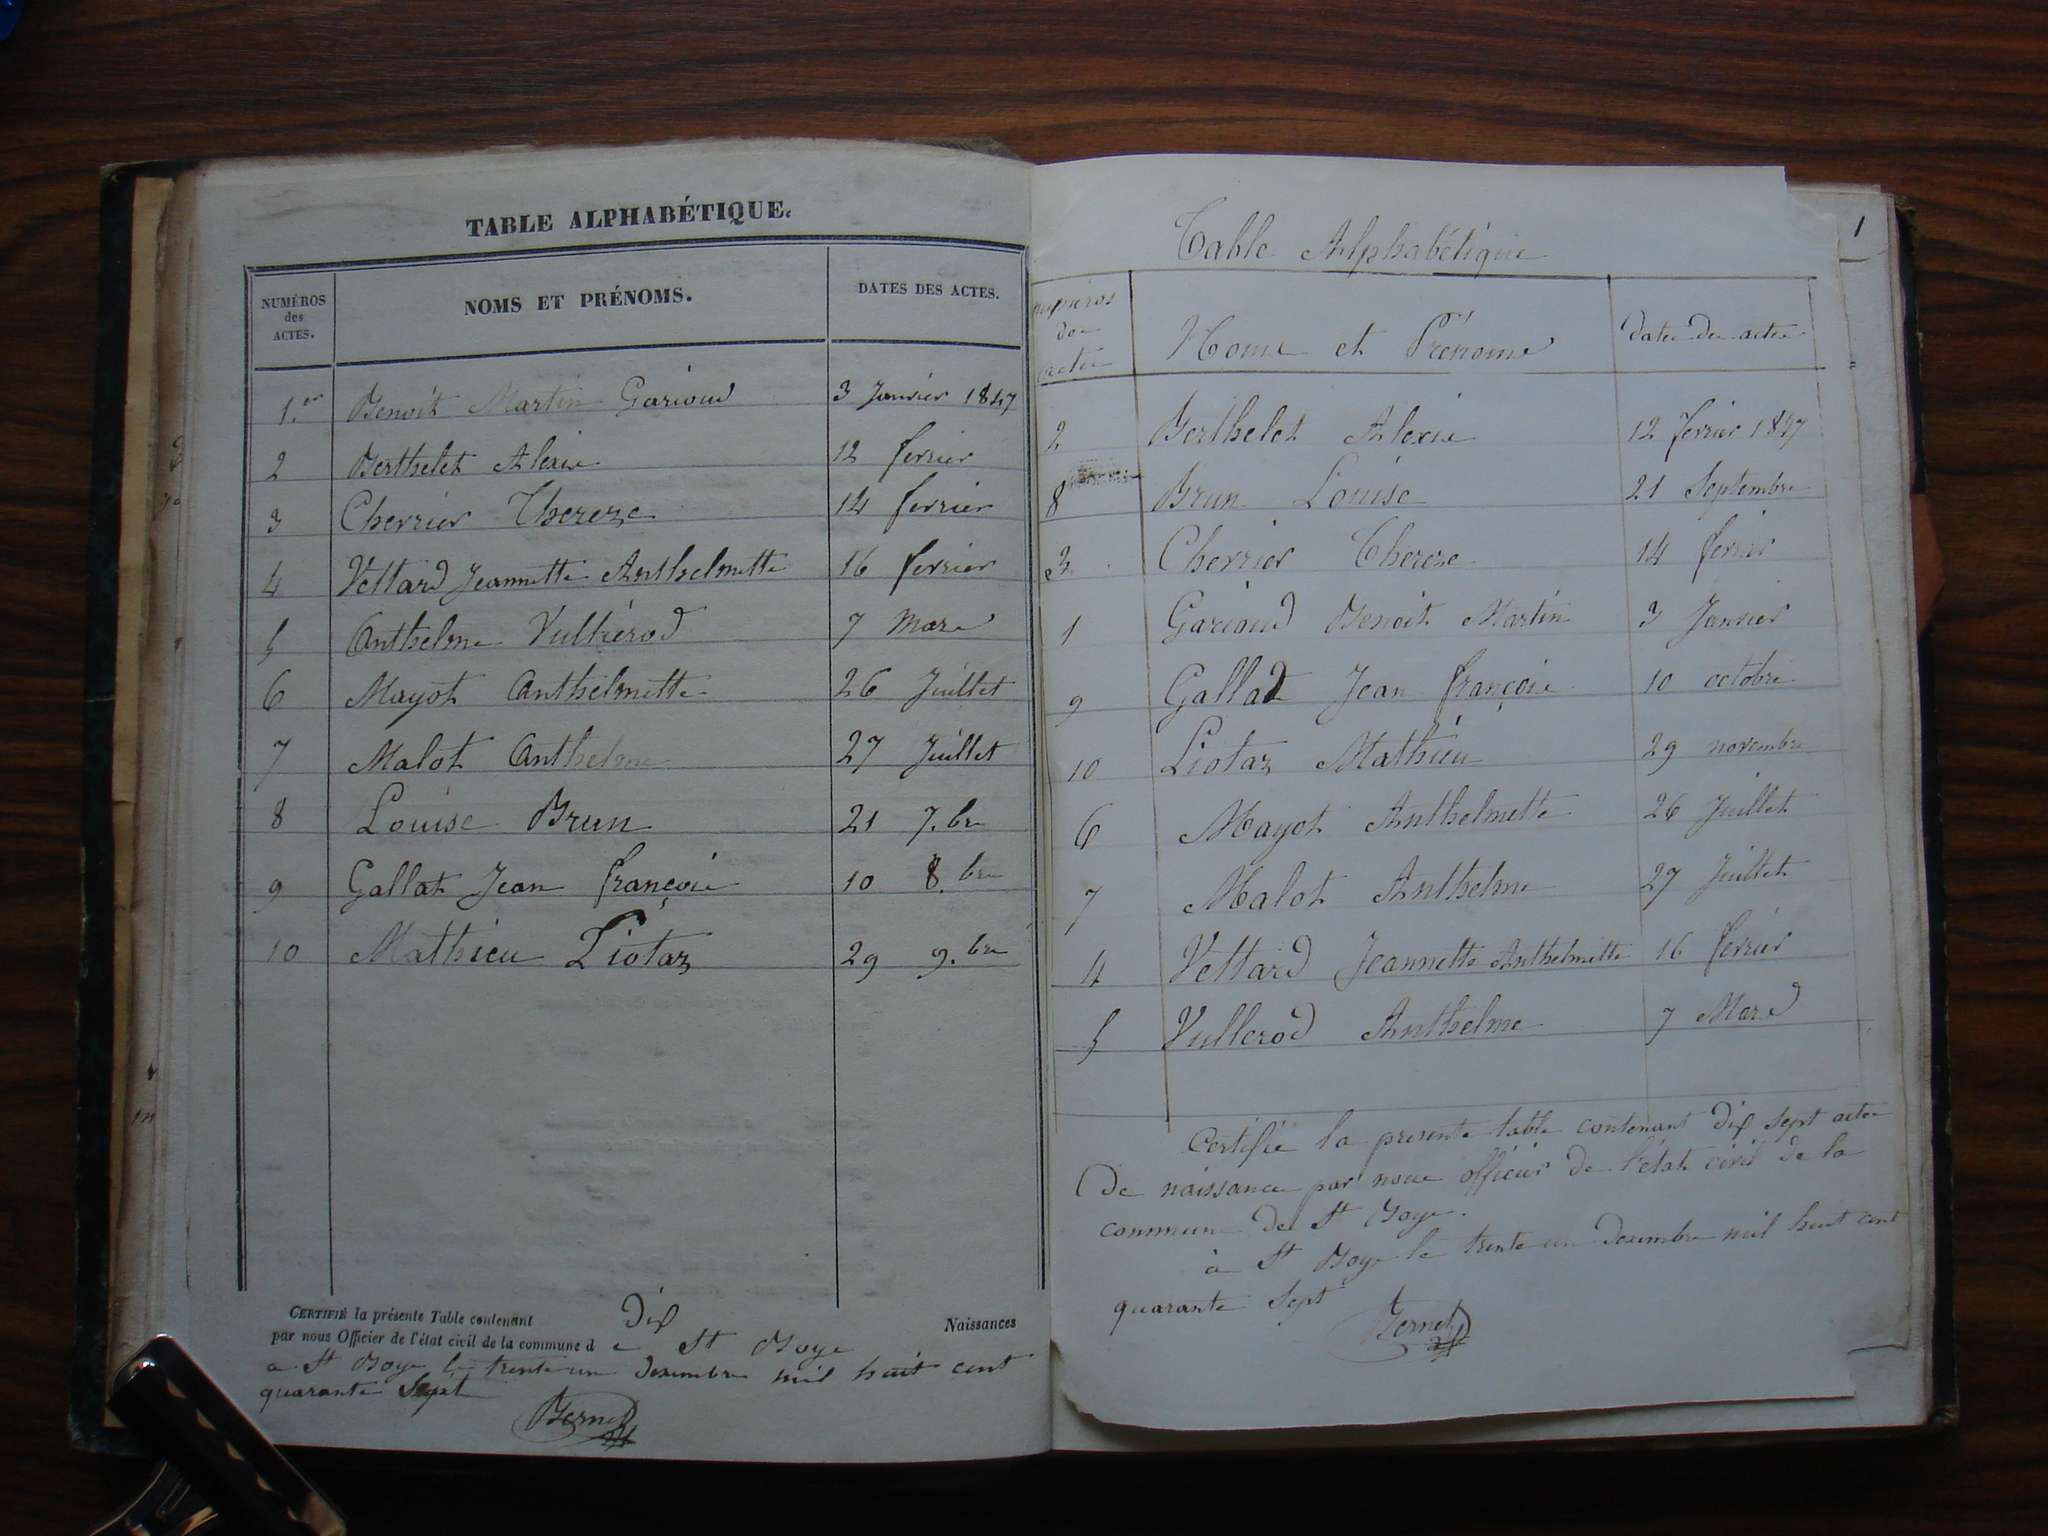 TABLE ALPHABÉTIQUE.
NUMÉROS des ACTES. NOMS ET PRÉNOMS. DATES DES ACTES.
1.er Benoit Martin Garioud 3 Janvier 1847
2 Berthelet Alexis 12 fevrier
3 Chervier Thereze 14 fevrier
4 Vettard Jeannette Anthelmette 16 fevrier
5 Anthelme Vulliérod 7 Mars
6 Mayot Anthelmette 26 Juillet
7 Malot Anthelme 27 Juillet
8 Louise Brun 21 7.bre
9 Gallat Jean françois 10 8.bre
10 Mathieu Liotaz 29 9.bre
CERTIFIÉ la présente Table contenant Dix Naissances
par nous Officier de l'état civil de la commune d e St Boys
a St Boys le trente un decembre mil huit cent
quarante Sept
Bernet
1
Table Alphabétique
numéros des actes Noms et Prénoms Dates des actes
2 Berthelet Alexis 12 fevrier 1847
8 Brun Louise 21 Septembre
3 Chervier Thereze 14 fevrier
1 Garioud Benoit Martin 3 Janvier
9 Gallat Jean françois 10 octobre
10 Liotaz Mathieu 29 novembre
6 Mayot Anthelmette 26 Juillet
7 Malot Anthelme 27 Juillet
4 Vettard Jeannette Anthelmette 16 fevrier
5 Vullerod Anthelme 7 Mars
Certifié la presente table contenant dix sept actes
De naissance par nous officier de l'état civil de la
commune de St Boys.
à St Boys le trente un decembre mil huit cent
quarante Sept
Bernet